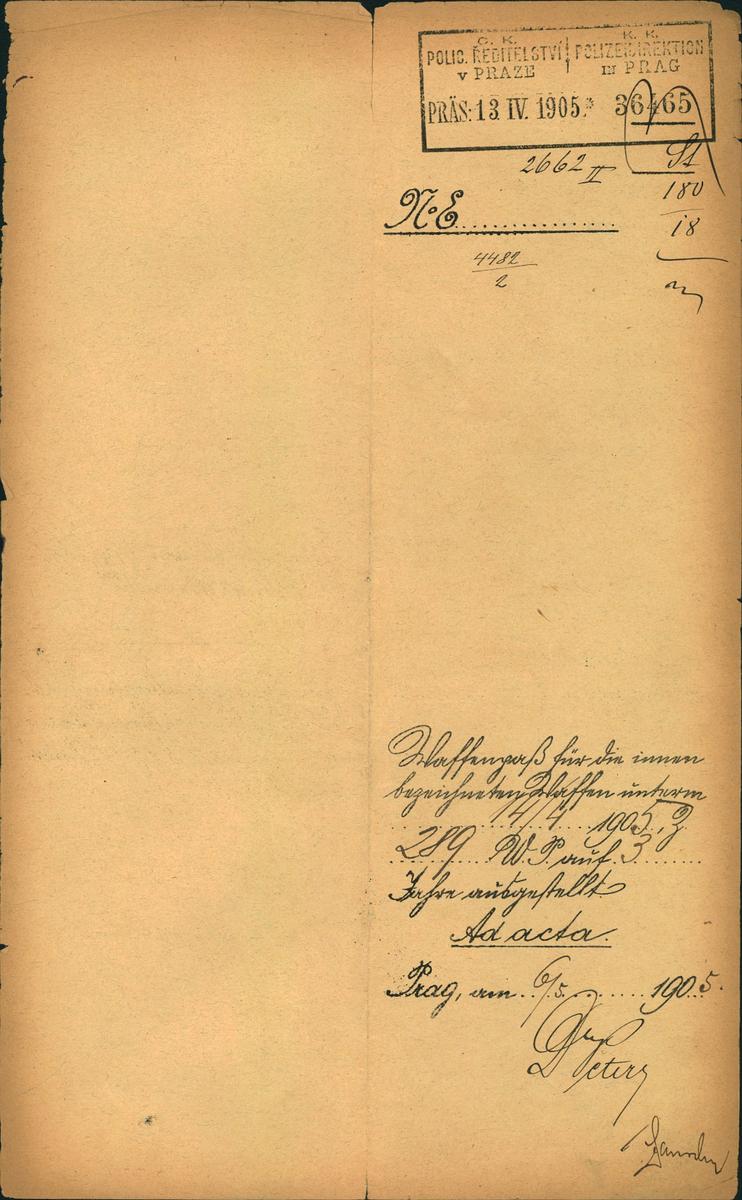 C. K. K. K.
POLIC. ŘEDITELSTVÍ POLIZEIDIREKTION
v PRAZE in PRAG
PRÄS: 13 IV. 1905. 36465
2662 II St
180
No E.
18
4482
2
Waffenpaß für die innen
bezeichneten Waffen unterm
14/4 1905, Z
289 W. P. auf 3
Jahre ausgestellt
Ad acta.
Prag, am 6/5. 1905.